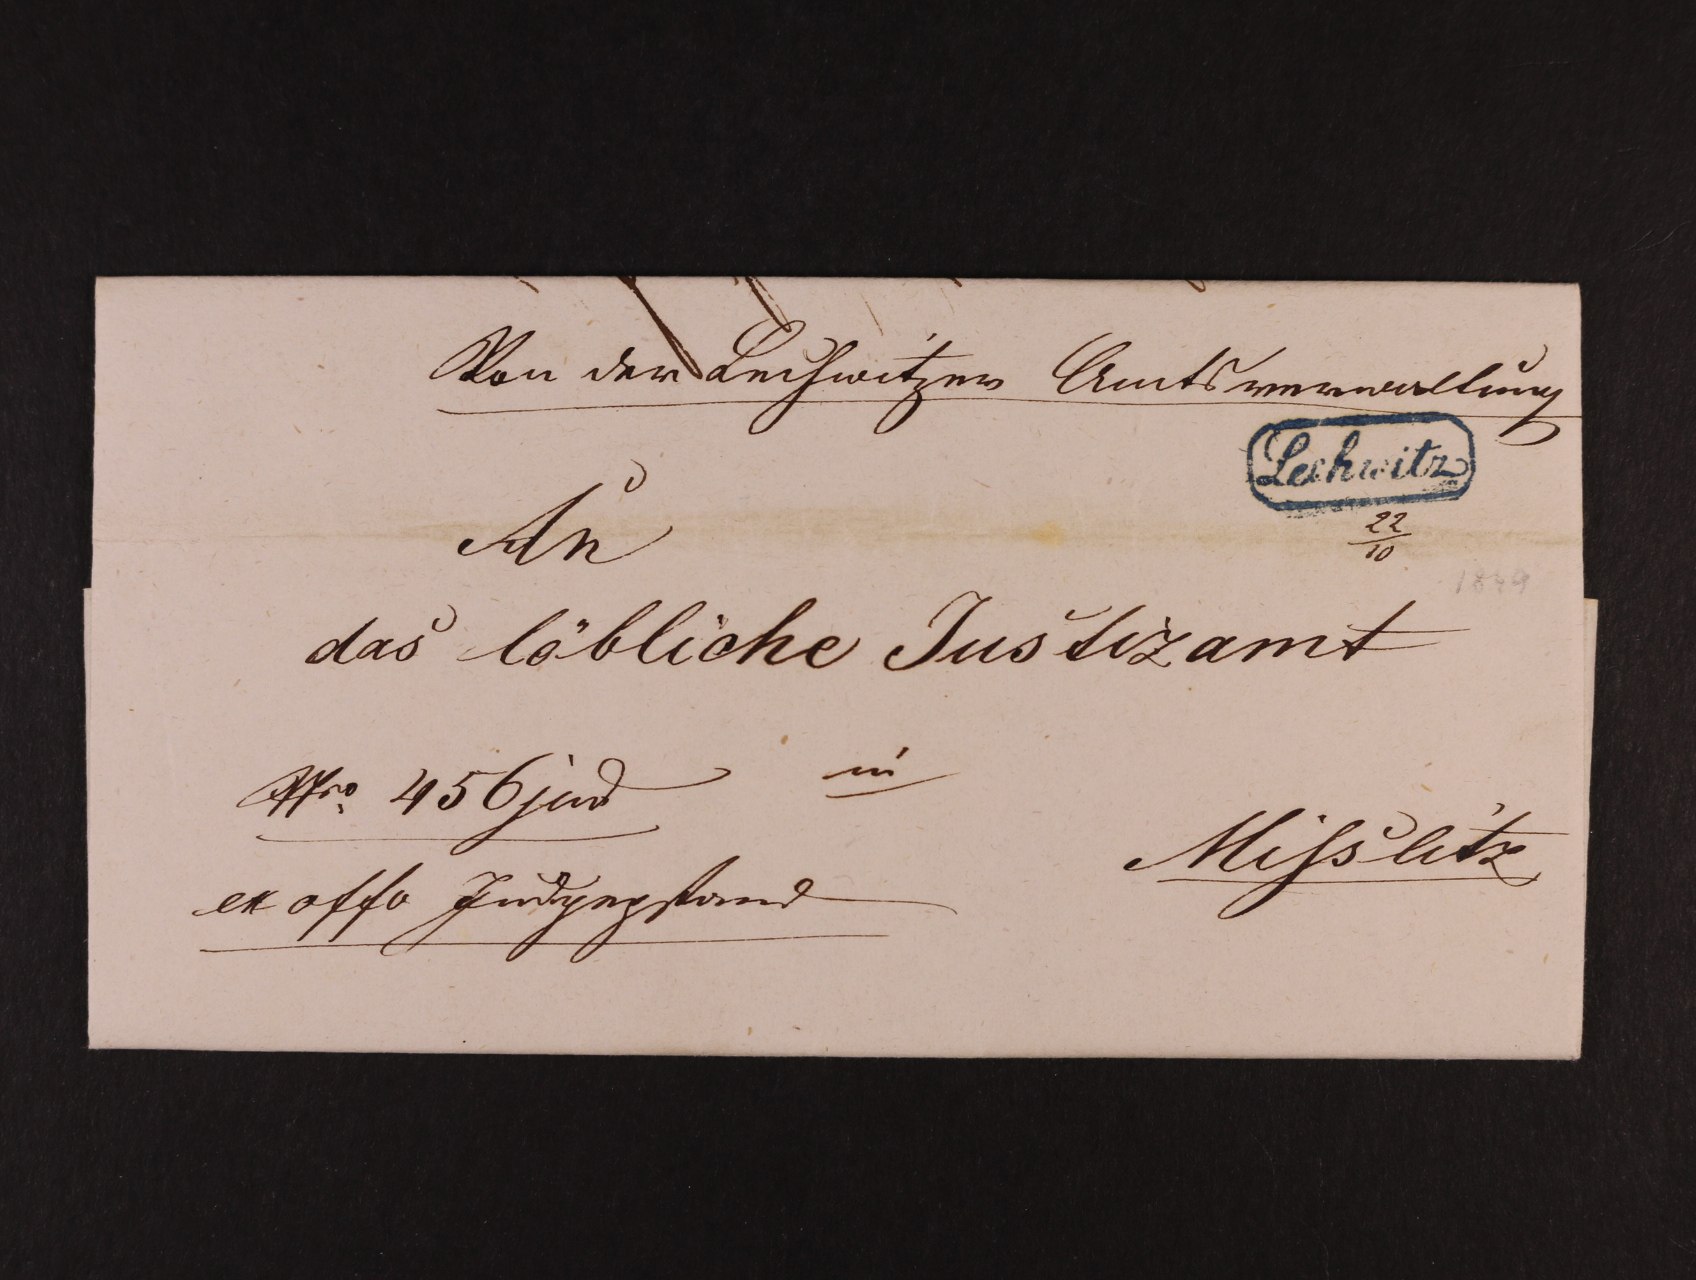 Von der Lechwitzer Amtsverwaltung
Lechwitz
22/10
1849
An
das löbliche Justizamt
Nro. 456 jud
in
Misslitz
ex offo